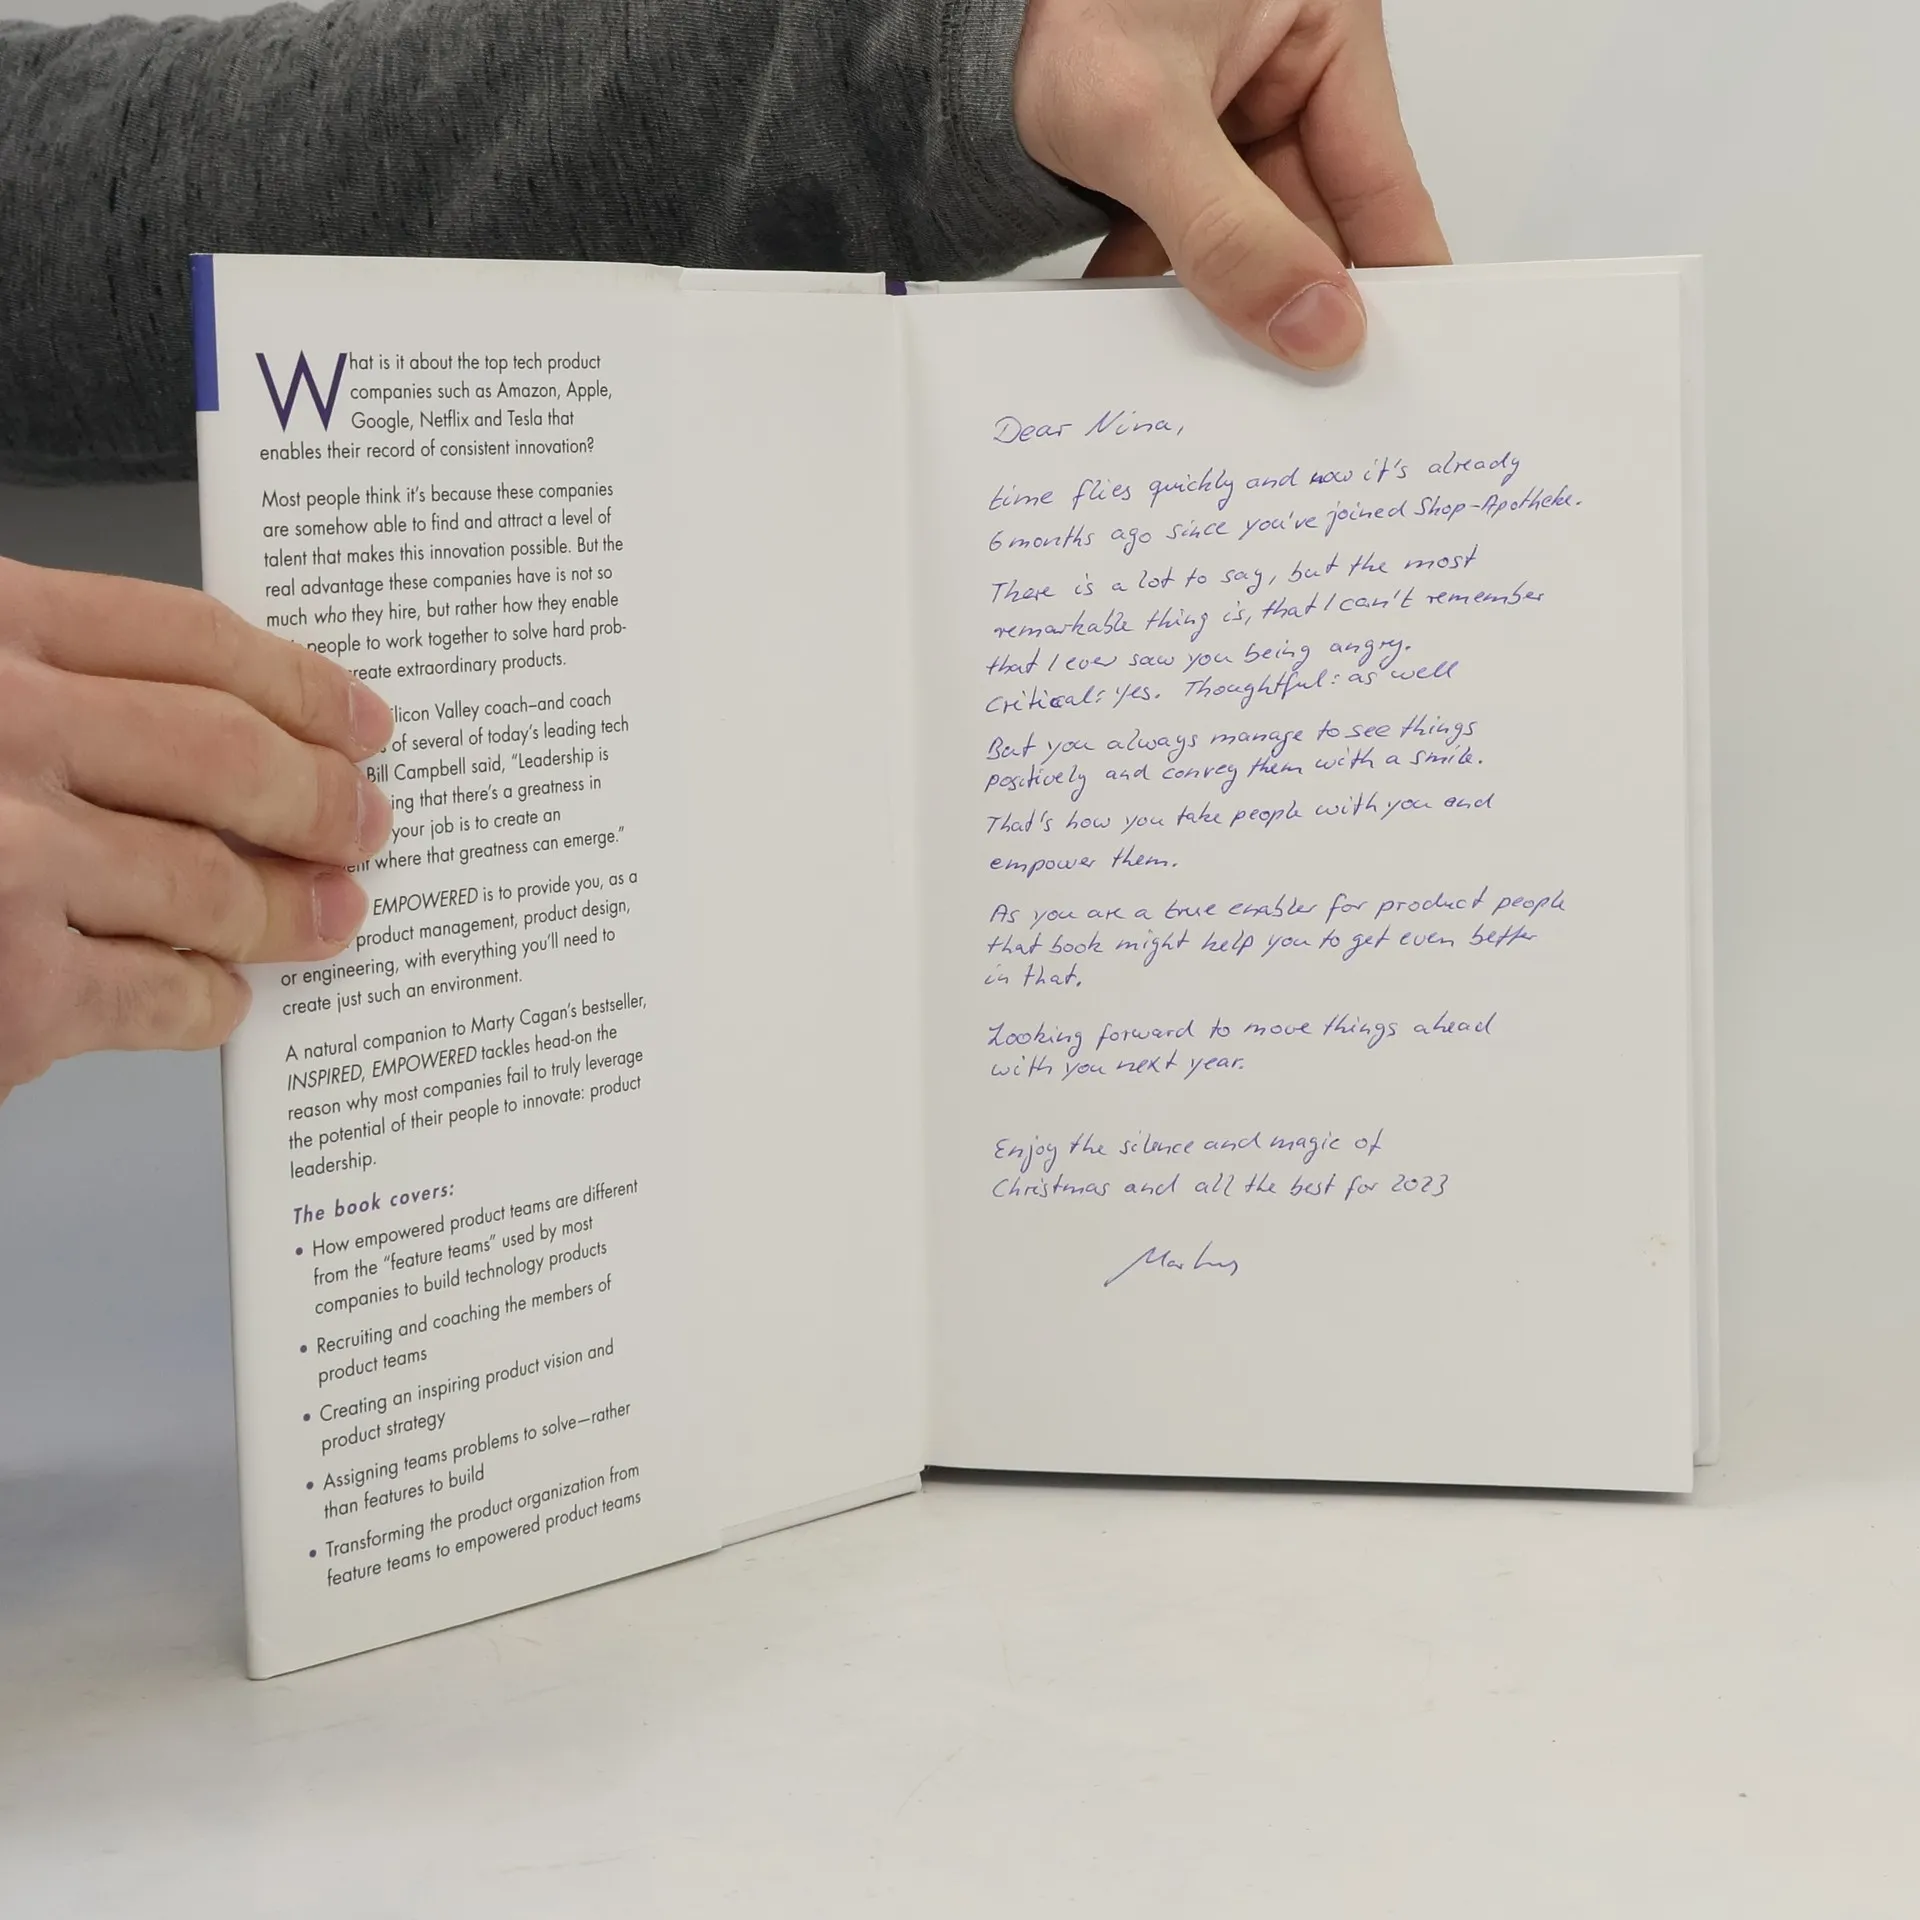 What is it about the top tech product
companies such as Amazon, Apple,
Google, Netflix and Tesla that
enables their record of consistent innovation?
Most people think it's because these companies
are somehow able to find and attract a level of
talent that makes this innovation possible. But the
real advantage these companies have is not so
much who they hire, but rather how they enable
people to work together to solve hard prob-
create extraordinary products.
Valley coach–and coach
of several of today's leading tech
Bill Campbell said, "Leadership is
that there's a greatness in
your job is to create an
where that greatness can emerge."
EMPOWERED is to provide you, as a
product management, product design,
or engineering, with everything you'll need to
create just such an environment.
A natural companion to Marty Cagan's bestseller,
INSPIRED, EMPOWERED tackles head-on the
reason why most companies fail to truly leverage
the potential of their people to innovate: product
leadership.
The book covers:
• How empowered product teams are different
from the "feature teams" used by most
companies to build technology products
• Recruiting and coaching the members of
product teams
• Creating an inspiring product vision and
product strategy
• Assigning teams problems to solve—rather
than features to build
• Transforming the product organization from
feature teams to empowered product teams
Dear Nina,
time flies quickly and now it's already
6 months ago since you've joined Shop-Apotheke.
There is a lot to say, but the most
remarkable thing is, that I can't remember
that I ever saw you being angry.
Critical: yes. Thoughtful: as well
But you always manage to see things
positively and convey them with a smile.
That's how you take people with you and
empower them.
As you are a true enabler for product people
that book might help you to get even better
in that.
Looking forward to move things ahead
with you next year.
Enjoy the silence and magic of
Christmas and all the best for 2023
Markus